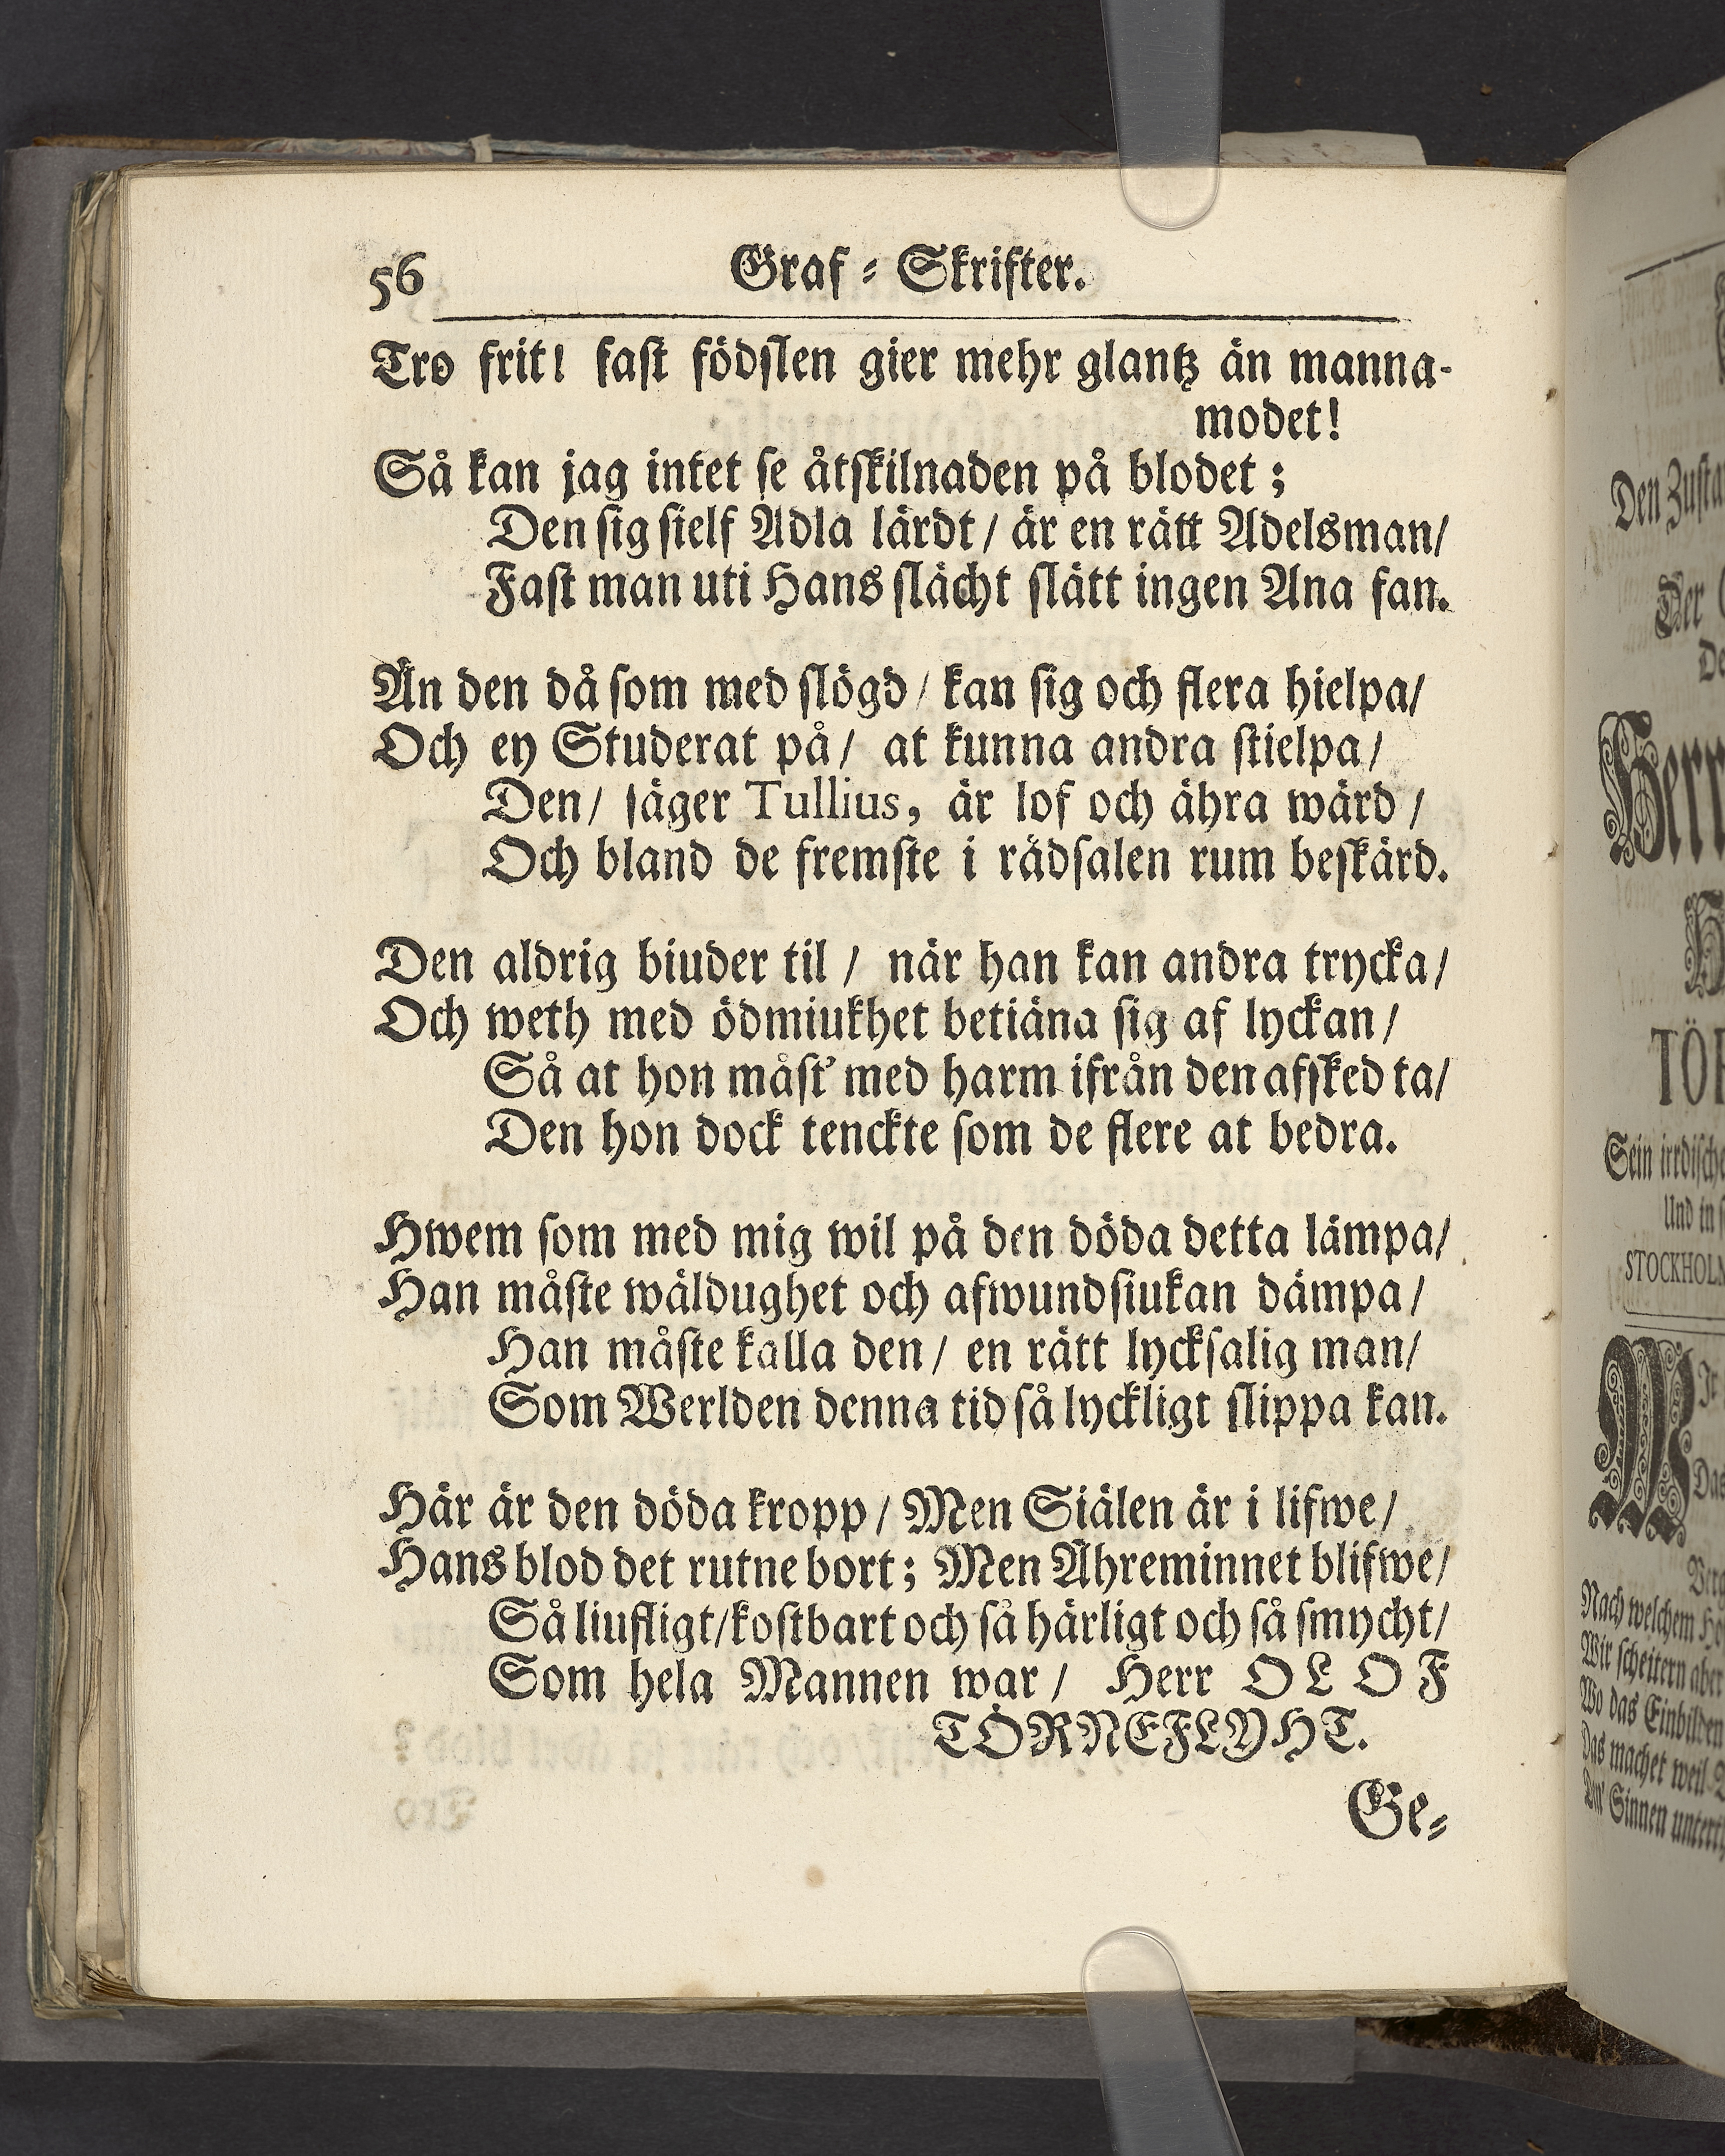 56
Graf-Skrifter.
Tro frit! fast födslen gier mehr glantz än manna-
modet!
Så kan jag intet se åtskilnaden på blodet;
Den sig sielf Adla lärdt/ är en rätt Adelsman/
Fast man uti Hans slächt slätt ingen Ana fan.
Än den då som med slögd/ kan sig och flera hielpa/
Och ey Studerat på/ at kunna andra stielpa/
Den/ säger Tullius, är lof och ähra wärd/
Och bland de fremste i rådsalen rum beskärd.
Den aldrig biuder til/ när han kan andra trycka/
Och weth med ödmiukhet betiäna sig af lyckan/
Så at hon måst' med harm ifrån den afsked ta/
Den hon dock tenckte som de flere at bedra.
Hwem som med mig wil på den döda detta lämpa/
Han måste wäldughet och afwundsiukan dämpa/
Han måste kalla den/ en rätt lycksalig man/
Som Werlden denna tid så lyckligt slippa kan.
Här är den döda kropp/ Men Siälen är i lifwe/
Hans blod det rutne bort; Men Ähreminnet blifwe/
Så liufligt/ kostbart och så härligt och så smycht/
Som hela Mannen war/ Herr OLOF
TÖRNEFLYHT.
Ge-
Den
Der
Herr
TÖR
Sein
Und in
STOCKHOLM
Das
Nach welchem
Wir scheitern aber
Wo das Einbilden
Das machet weil
Sinnen